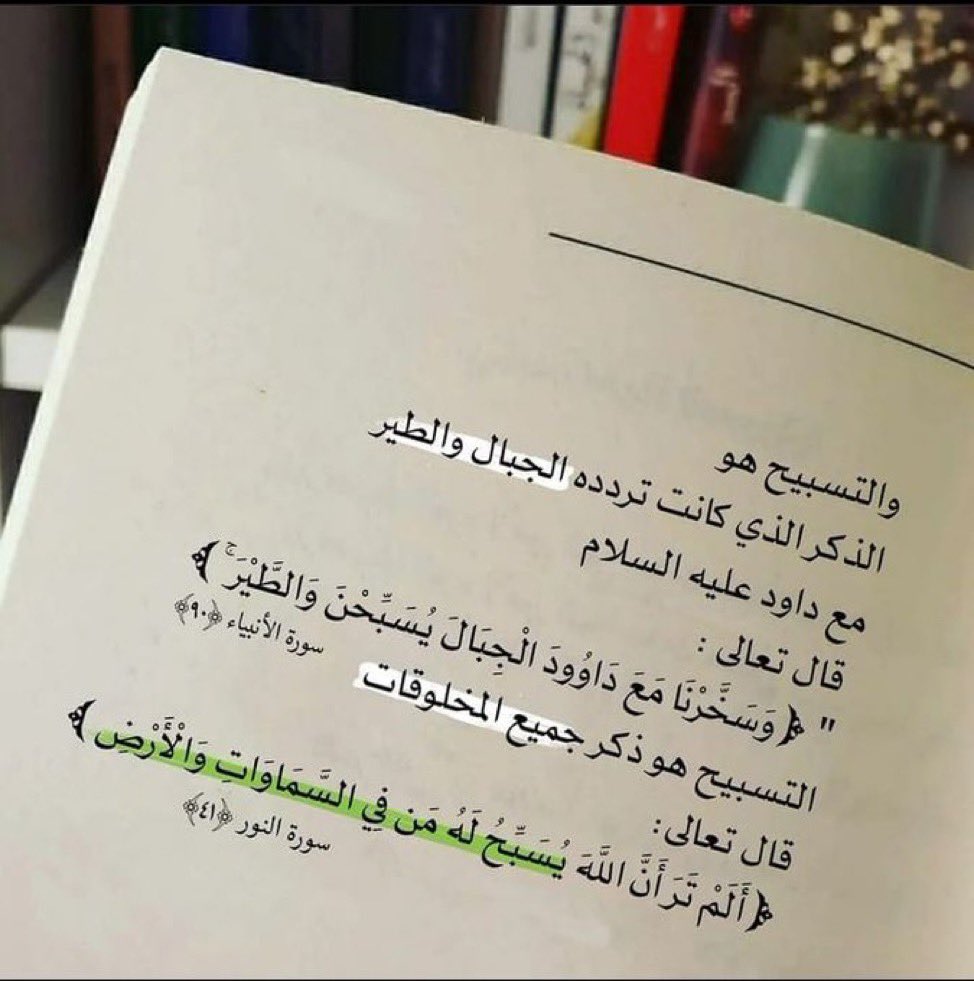 والتسبيح هو
الذكر الذي كانت تردده الجبال والطير
مع داود عليه السلام
قال تعالى :
" ﴿وَسَخَّرْنَا مَعَ دَاوُودَ الْجِبَالَ يُسَبِّحْنَ وَالطَّيْرَ ۚ﴾
سورة الأنبياء ﴿٩٠﴾
التسبيح هو ذكر جميع المخلوقات
قال تعالى:
﴿أَلَمْ تَرَ أَنَّ اللَّهَ يُسَبِّحُ لَهُ مَن فِي السَّمَاوَاتِ وَالْأَرْضِ﴾
سورة النور ﴿٤١﴾